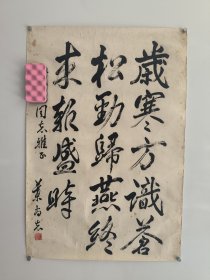 歲寒方識蒼
松勁歸燕終
来報盛時
同志雅正
葉尚志